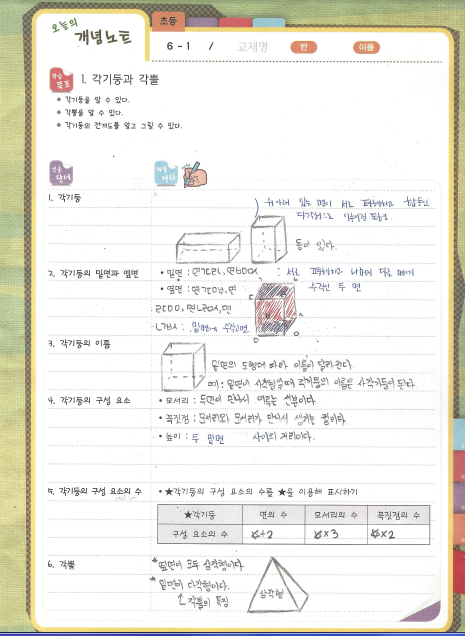 오늘의
개념노트
초등
6 - 1 / 교재명 반 이름
학습
목표
1. 각기둥과 각뿔
각기둥을 알 수 있다.
각뿔을 알 수 있다.
각기둥의 전개도를 알고 그릴 수 있다.
개념
정리
1. 각기둥
위아래 있는 면이 서로 평행하고 합동인
다각형으로 이루어진 도형
등이 있다.
2. 각기둥의 밑면과 옆면
• 밑면 : : 서로 평행하고 나머지 다른 면에
• 옆면 : 수직인 두 면
밑면에 수직인 면
3. 각기둥의 이름
밑면의 도형에 따라 이름이 달라진다
예: 밑면이 사각형일 때 각기둥의 이름은 사각기둥이 된다.
4. 각기둥의 구성 요소
• 모서리 : 두 면이 만나서 이루는 선분이다.
• 꼭짓점 : 모서리와 모서리가 만나서 생기는 점이다.
• 높이 : 두 밑면 사이의 거리이다.
5. 각기둥의 구성 요소의 수
• ★각기둥의 구성 요소의 수를 ★을 이용해 표시하기
★각기둥 면의 수 모서리의 수 꼭짓점의 수
구성 요소의 수 ☆+2 ☆×3 ☆×2
6. 각뿔
* 옆면이 모두 삼각형이다.
* 밑면이 다각형이다.
↑ 각뿔의 특징
삼각형